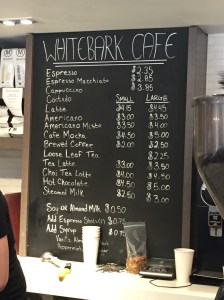 WHITEBARK CAFE
Espresso $2.35
Espresso Macchiato $2.85
Cappuccino $3.85
Cortado SMALL LARGE
Latte $4.15 $4.45
Americano $3.00 $3.50
Americano Misto $3.50 $4.00
Cafe Mocha $4.50 $5.00
Brewed Coffee $2.00 $2.50
Loose Leaf Tea $2.25
Tea Latte $3.00 $3.50
Chai Tea Latte $4.00 $4.50
Hot Chocolate $4.50 $5.00
Steamed Milk $2.50 $3.00
Soy or Almond Milk $0.50
Add Espresso Shot $0.75
Add Syrup $0.75
Vanilla, Almond
Peppermint